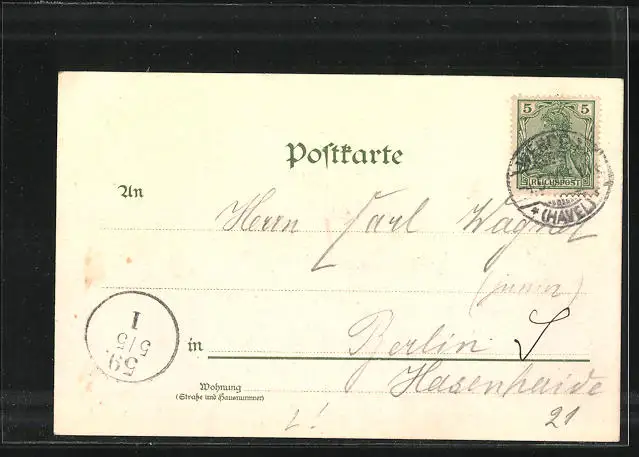 5 5
REICHSPOST
* (HAVEL)
Postkarte
An
Herrn Carl Wagner
(junior)
in Berlin S
Hasenhaide
21
Wohnung
(Straße und Hausnummer)
59.
5/5
I